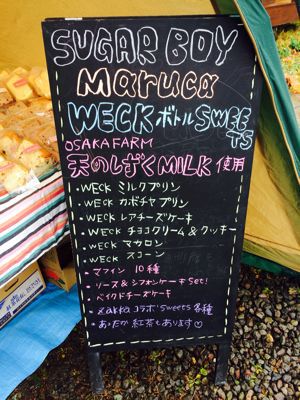 SUGAR BOY
Maruca
WECK ボトル SWEE
TS
OSAKA FARM
天のしずくMILK 使用
・WECK ミルクプリン
・WECK カボチャプリン
・WECK レアチーズケーキ
・WECK チョコクリーム&クッキー
・WECK マカロン
・WECK スコーン
・マフィン 10種
・ソース&シフォンケーキ Set!
・ベイクドチーズケーキ
・Zakkaコラボ sweets 各種
・あったか 紅茶もあります♡